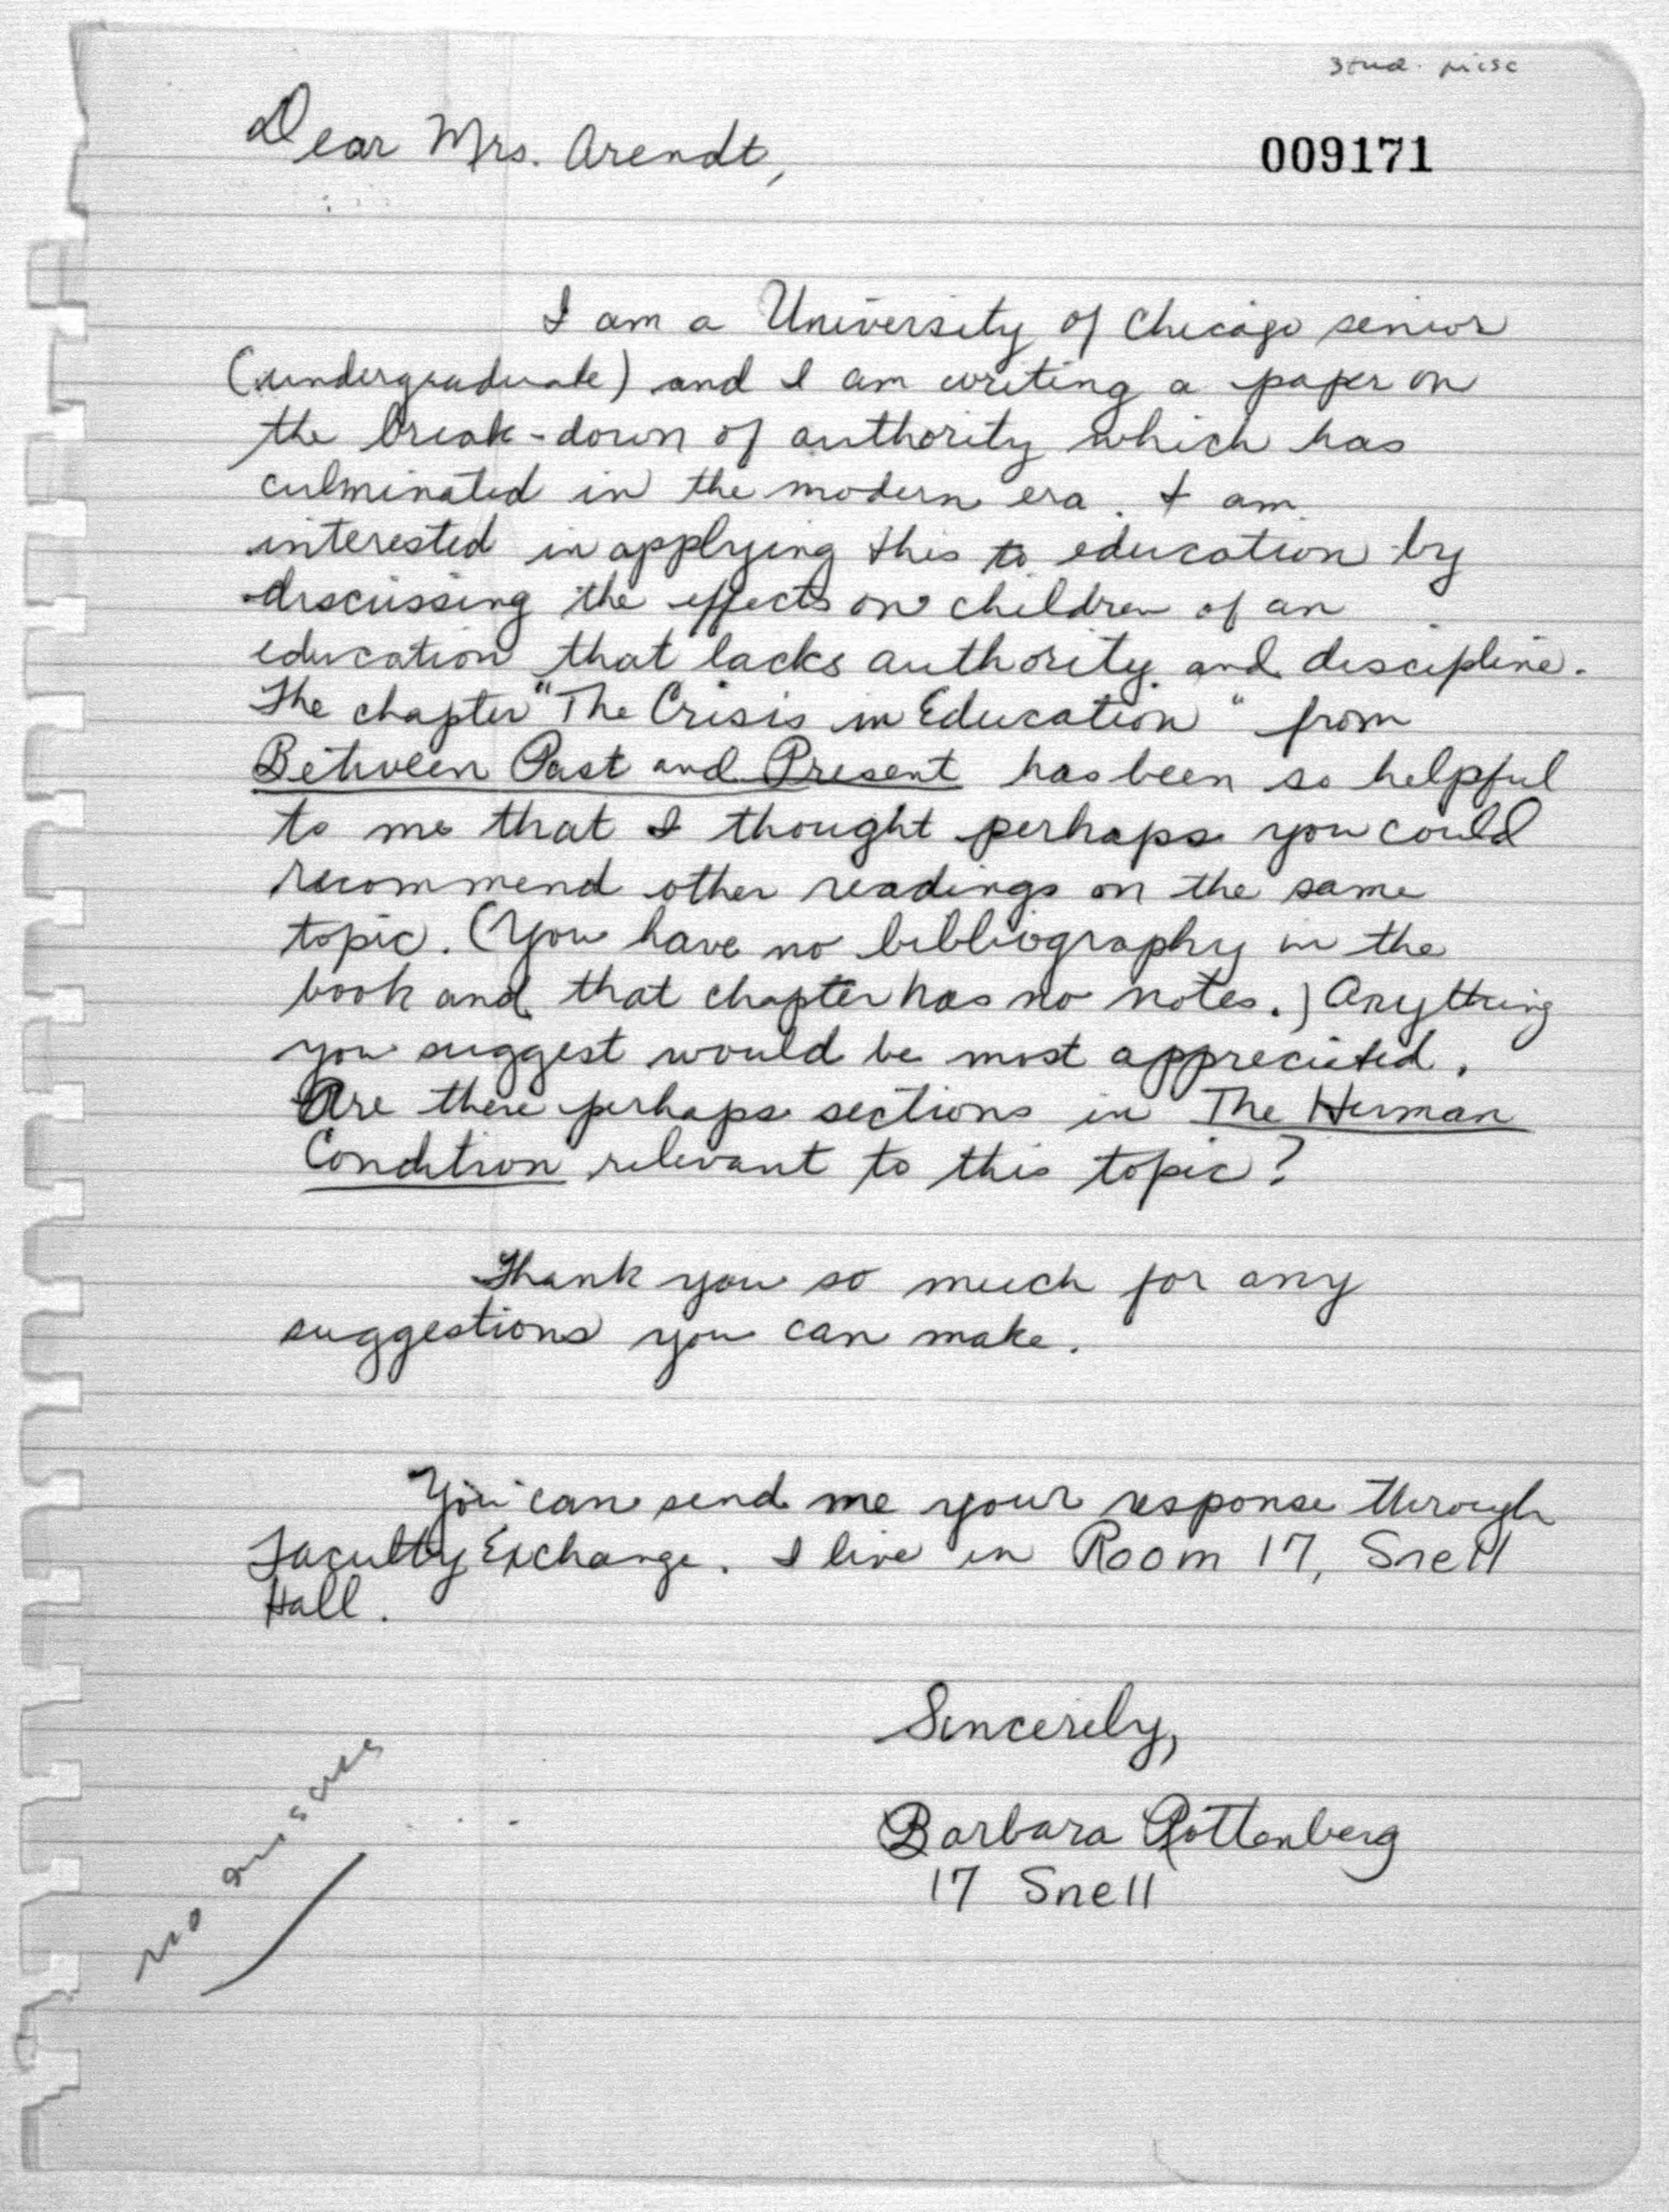 stud. misc
Dear Mrs. Arendt,
009171
I am a University of Chicago senior
(undergraduate) and I am writing a paper on
the break-down of authority which has
culminated in the modern era. I am
interested in applying this to education by
discussing the effects on children of an
education that lacks authority and discipline.
The chapter "The Crisis in Education" from
Between Past and Present has been so helpful
to me that I thought perhaps you could
recommend other readings on the same
topic. (You have no bibliography in the
book and that chapter has no notes.) Anything
you suggest would be most appreciated.
Are there perhaps sections in The Human
Condition relevant to this topic?
Thank you so much for any
suggestions you can make.
You can send me your response through
Faculty Exchange. I live in Room 17, Snell
Hall.
Sincerely,
Barbara Rottenberg
17 Snell
no answer